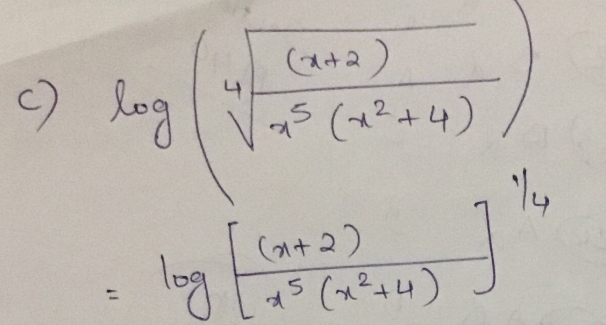 c) log ( ⁴√( (x+2) / x⁵ (x²+4) ) )
= log [ (x+2) / x⁵ (x²+4) ]^1/4